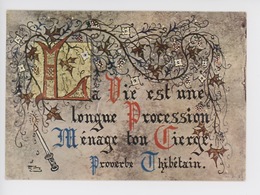 La Vie est une
longue Procession
Ménage ton Cierge.
Proverbe Thibétain.